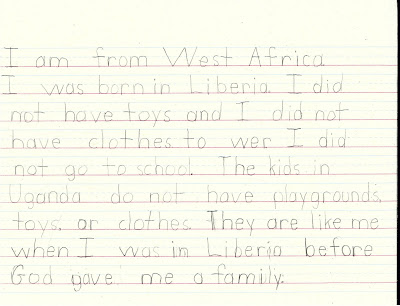 I am from West Africa
I was born in Liberia. I did
not have toys and I did not
have clothes to wer I did
not go to school. The kids in
Uganda do not have playgrounds,
toys, or clothes. They are like me
when I was in Liberia before
God gave me a family.